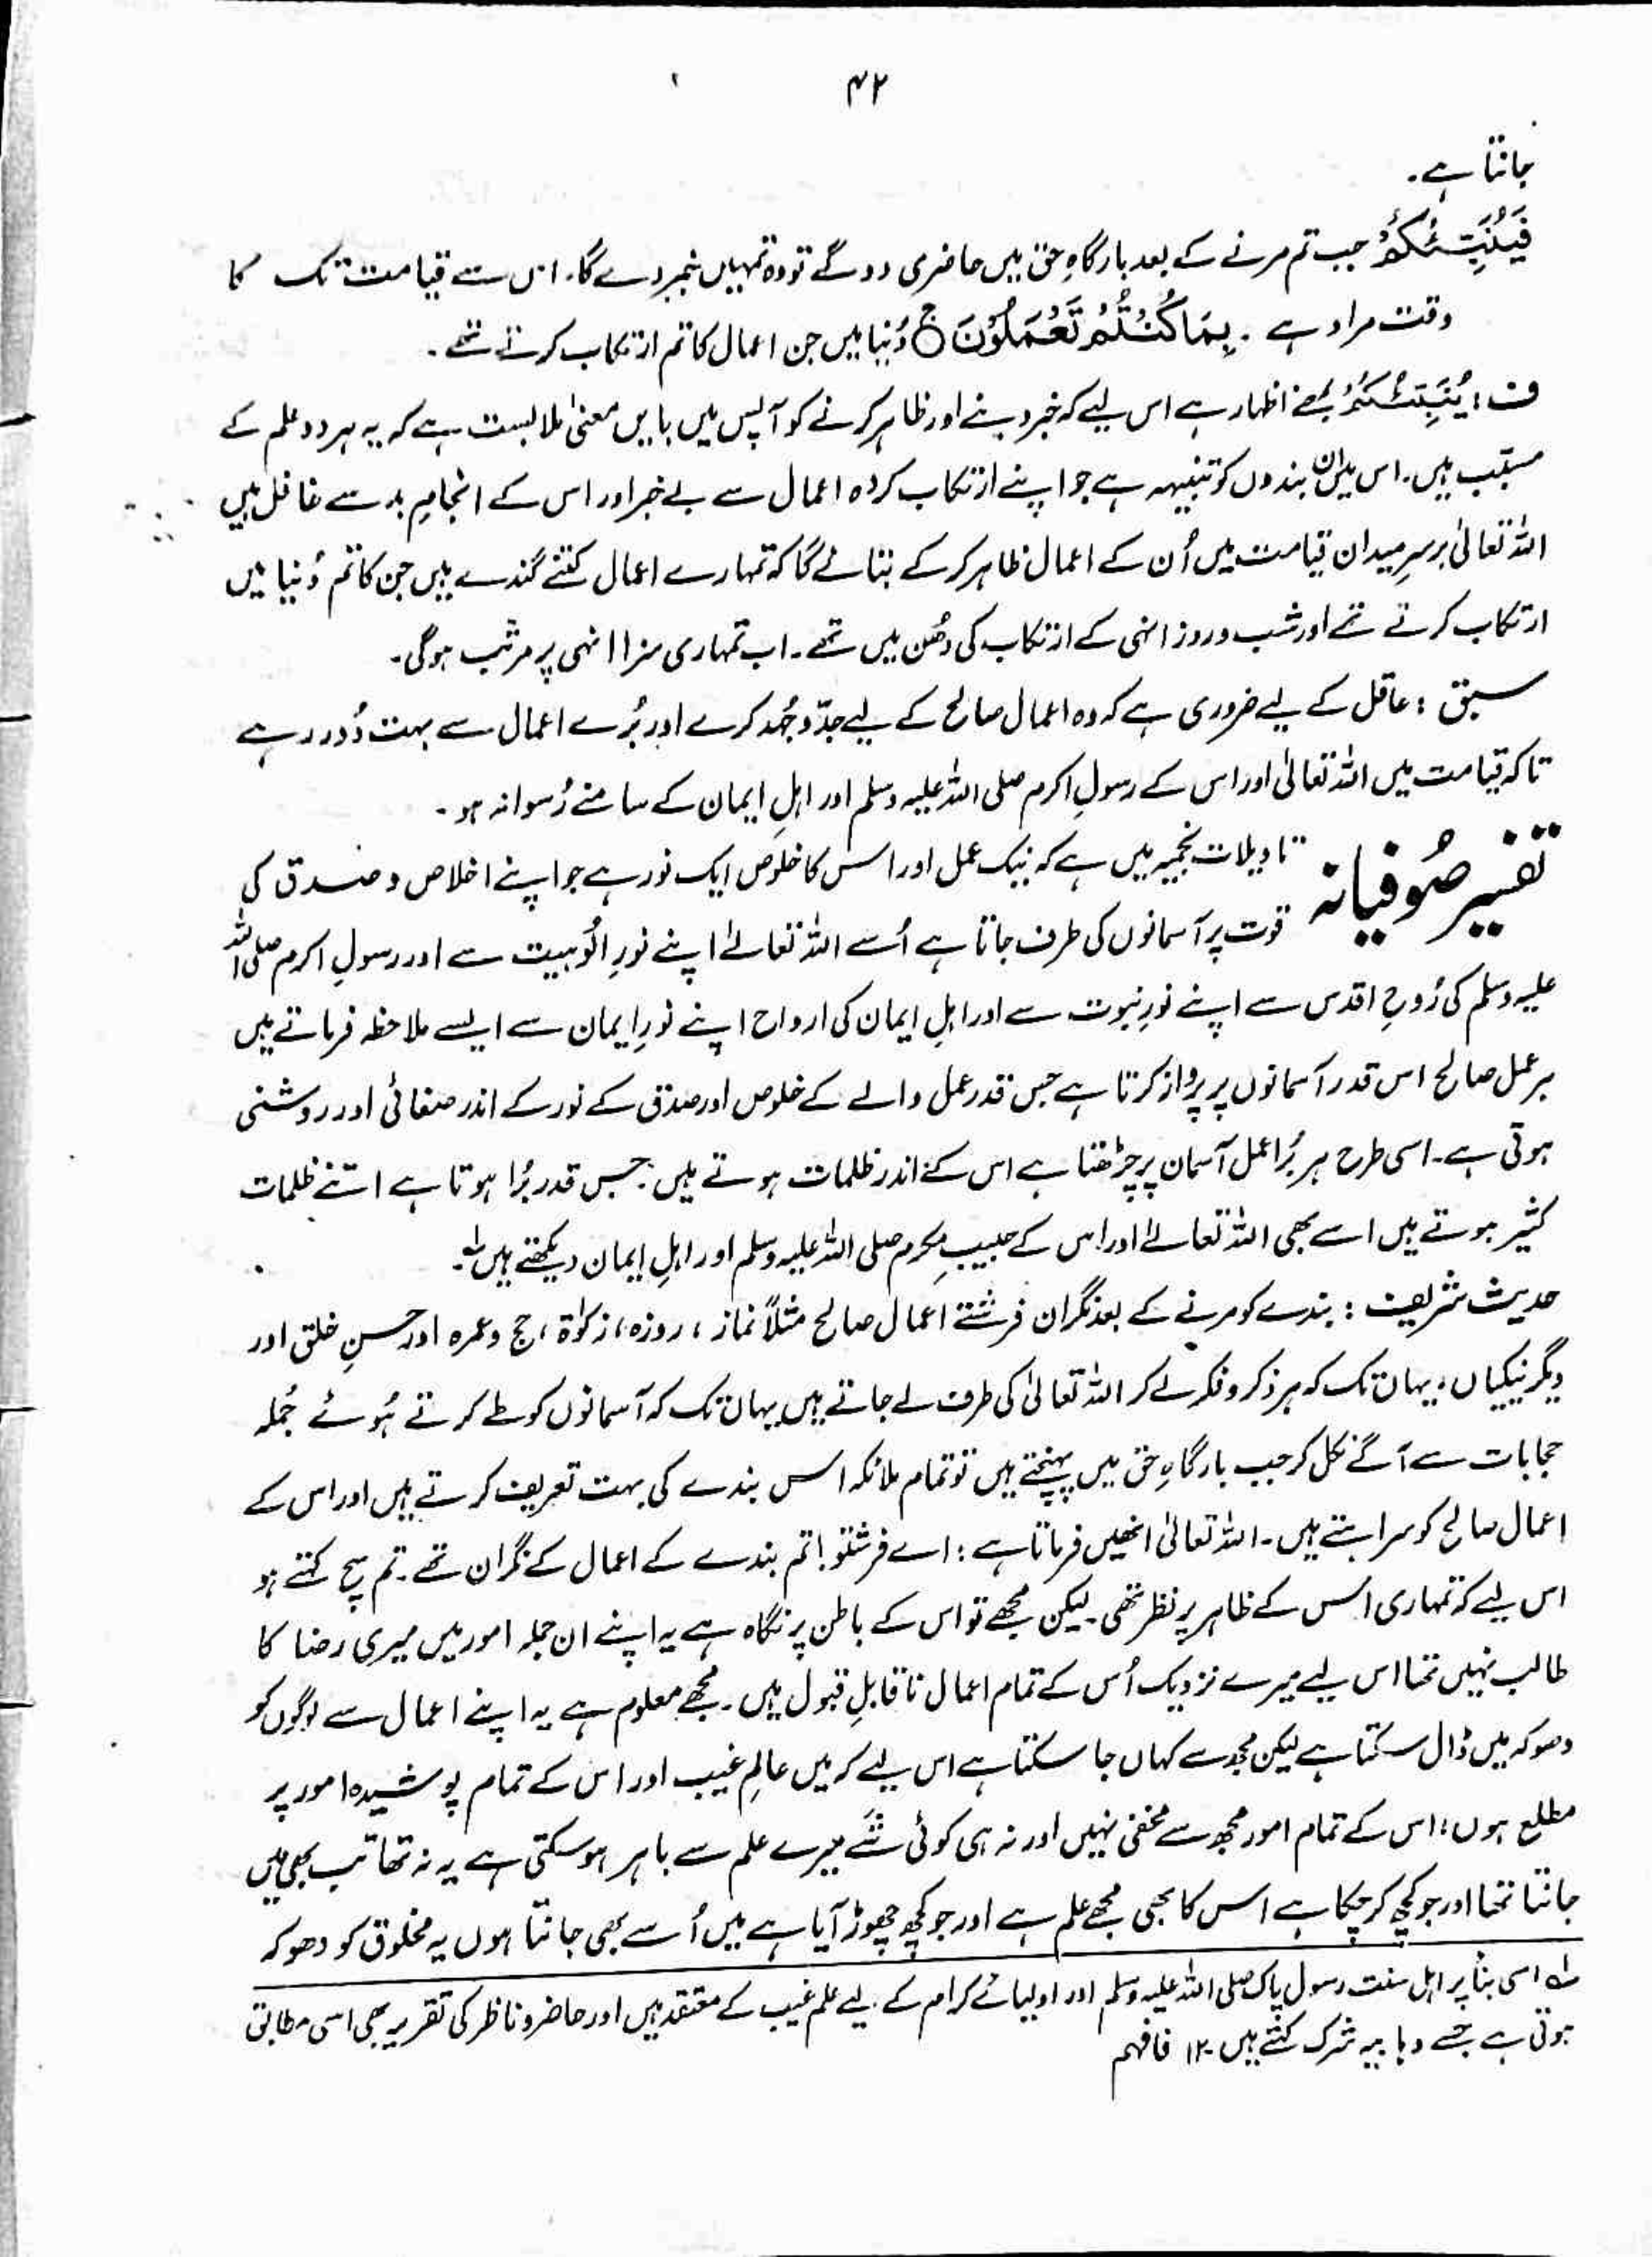 ۴۲
جانتا ہے۔
فَیُنَبِّئُکُمْ جب تم مرنے کے بعد بارگاہِ حق میں حاضری دو گے تو وہ تمہیں خبر دے گا۔ اس سے قیامت تک کا
وقت مراد ہے۔ بِمَا کُنْتُمْ تَعْمَلُوْنَ ○ ج دُنیا میں جن اعمال کا تم ارتکاب کرتے تھے۔
ف: یُنَبِّئُکُمْ بمعنے اظہار ہے اس لیے کہ خبر دینے اور ظاہر کرنے کو آپس میں بایں معنیٰ ملابست ہے کہ یہ ہر دو علم کے
مسبّب ہیں۔ اس میں ان بندوں کو تنبیہہ ہے جو اپنے ارتکاب کردہ اعمال سے بے خبر اور اس کے انجامِ بد سے غافل ہیں
اللہ تعالیٰ برسرِ میدان قیامت میں اُن کے اعمال ظاہر کر کے بتائے گا کہ تمہارے اعمال کتنے گندے ہیں جن کا تم دُنیا میں
ارتکاب کرتے تھے اور شب و روز انہی کے ارتکاب کی دھُن میں تھے۔ اب تمہاری سزا انہی پر مرتّب ہوگی۔
سبق: عاقل کے لیے ضروری ہے کہ وہ اعمال صالح کے لیے جدّوجُہد کرے اور بُرے اعمال سے بہت دُور رہے
تاکہ قیامت میں اللہ تعالیٰ اور اس کے رسولِ اکرم صلی اللہ علیہ وسلم اور اہلِ ایمان کے سامنے رُسوا نہ ہو۔
تفسیر صُوفیانہ تاویلات نجمیہ میں ہے کہ نیک عمل اور اس کا خلوص ایک نور ہے جو اپنے اخلاص و صدق کی
قوت پر آسمانوں کی طرف جاتا ہے اُسے اللہ تعالےٰ اپنے نورِ الُوہیت سے اور رسولِ اکرم صلی اللہ
علیہ وسلم کی رُوحِ اقدس سے اپنے نورِ نبوت سے اور اہلِ ایمان کی ارواح اپنے نورِ ایمان سے ایسے ملاحظہ فرماتے ہیں
ہر عمل صالح اس قدر آسمانوں پر پرواز کرتا ہے جس قدر عمل والے کے خلوص اور صدق کے نور کے اندر صفائی اور روشنی
ہوتی ہے۔ اسی طرح ہر بُرا عمل آسمان پر چڑھتا ہے اس کے اندر ظلمات ہوتے ہیں جس قدر بُرا ہوتا ہے اتنے ظلمات
کثیر ہوتے ہیں اسے بھی اللہ تعالےٰ اور اس کے حبیبِ مکرم صلی اللہ علیہ وسلم اور اہلِ ایمان دیکھتے ہیں لہ۔
حدیث شریف: بندے کو مرنے کے بعد نگران فرشتے اعمال صالح مثلاً نماز، روزہ، زکوٰۃ، حج وعمرہ اور حسنِ خلق اور
دیگر نیکیاں، یہاں تک کہ ہر ذکر و فکر لے کر اللہ تعالیٰ کی طرف لے جاتے ہیں یہاں تک کہ آسمانوں کو طے کرتے ہُوئے جُملہ
حجابات سے آگے نکل کر جب بارگاہِ حق میں پہنچتے ہیں تو تمام ملائکہ اس بندے کی بہت تعریف کرتے ہیں اور اس کے
اعمال صالح کو سراہتے ہیں۔ اللہ تعالیٰ انھیں فرماتا ہے: اے فرشتو! تم بندے کے اعمال کے نگران تھے۔ تم سچ کہتے ہو
اس لیے کہ تمہاری اُس کے ظاہر پر نظر تھی۔ لیکن مجھے تو اس کے باطن پر نگاہ ہے یہ اپنے ان جملہ امور میں میری رضا کا
طالب نہیں تھا اس لیے میرے نزدیک اُس کے تمام اعمال ناقابلِ قبول ہیں۔ مجھے معلوم ہے یہ اپنے اعمال سے لوگوں کو
دھوکہ میں ڈال سکتا ہے لیکن مجھ سے کہاں جا سکتا ہے اس لیے کہ میں عالمِ غیب اور اس کے تمام پوشیدہ امور پر
مطلع ہوں؛ اس کے تمام امور مجھ سے مخفی نہیں اور نہ ہی کوئی شَے میرے علم سے باہر ہو سکتی ہے یہ نہ تھا تب بھی میں
جانتا تھا اور جو کچھ کر چکا ہے اس کا بھی مجھے علم ہے اور جو کچھ چھوڑ آیا ہے میں اُسے بھی جانتا ہوں یہ مخلوق کو دھوکہ
لہ اسی بنا پر اہل سنت رسول پاک صلی اللہ علیہ وسلم اور اولیائے کرام کے لیے علم غیب کے معتقد ہیں اور حاضر و ناظر کی تقریر بھی اسی مطابق
ہوتی ہے جسے وہابیہ شرک کہتے ہیں۔ ۱۲ فافہم